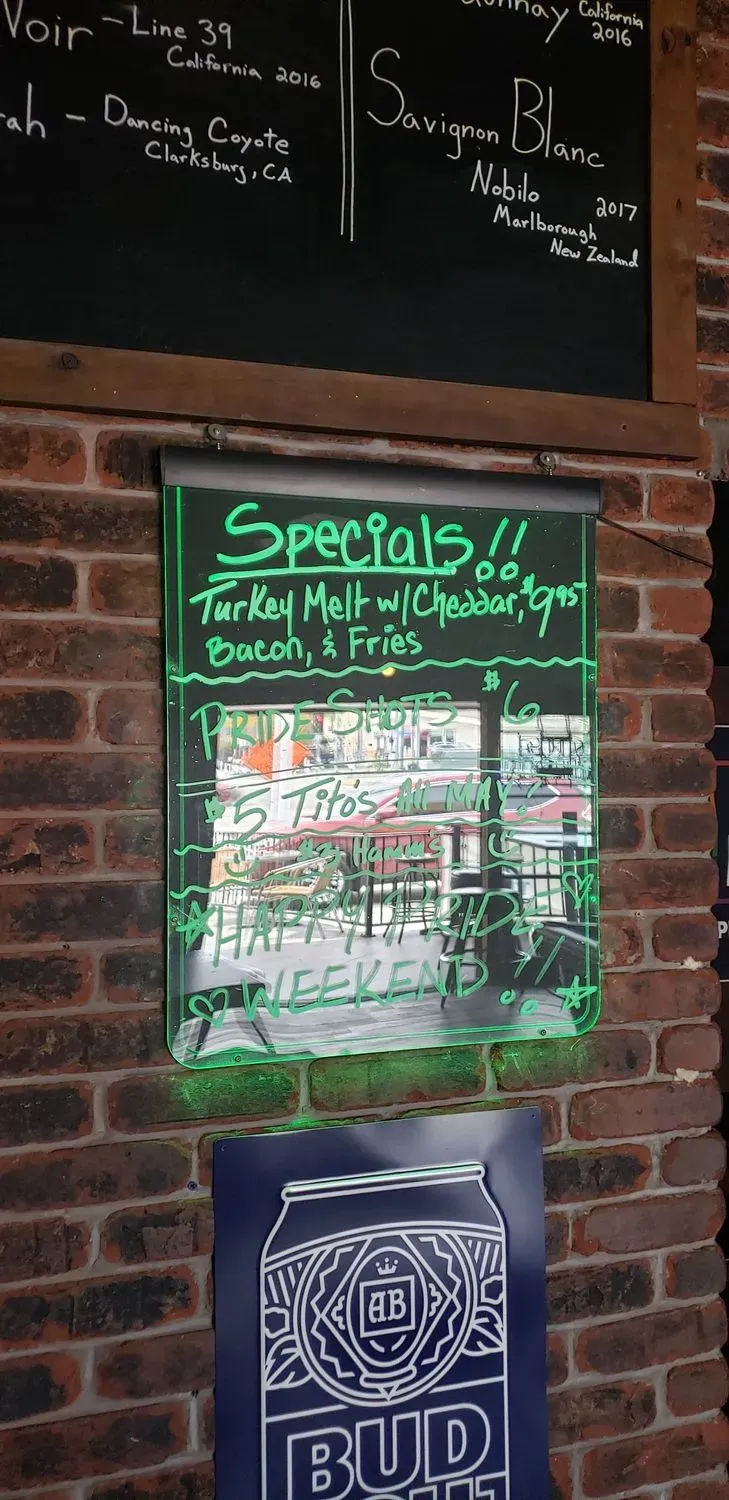 Noir - Line 39
California 2016
rah - Dancing Coyote
Clarksburg, CA
California
2016
Savignon Blanc
Nobilo 2017
Marlborough
New Zealand
Specials!!
Turkey Melt w/Cheddar, $9.95
Bacon, & Fries
PRIDE SHOTS $6
$5 Tito's All MAY!
$3 Hamm's
HAPPY PRIDE
WEEKEND!!
AB
BUD